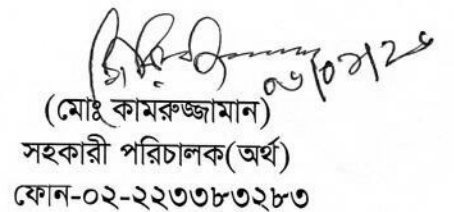 (মোঃ কামরুজ্জামান)
সহকারী পরিচালক(অর্থ)
ফোন-০২-২২৩৩৮৩২৮৩